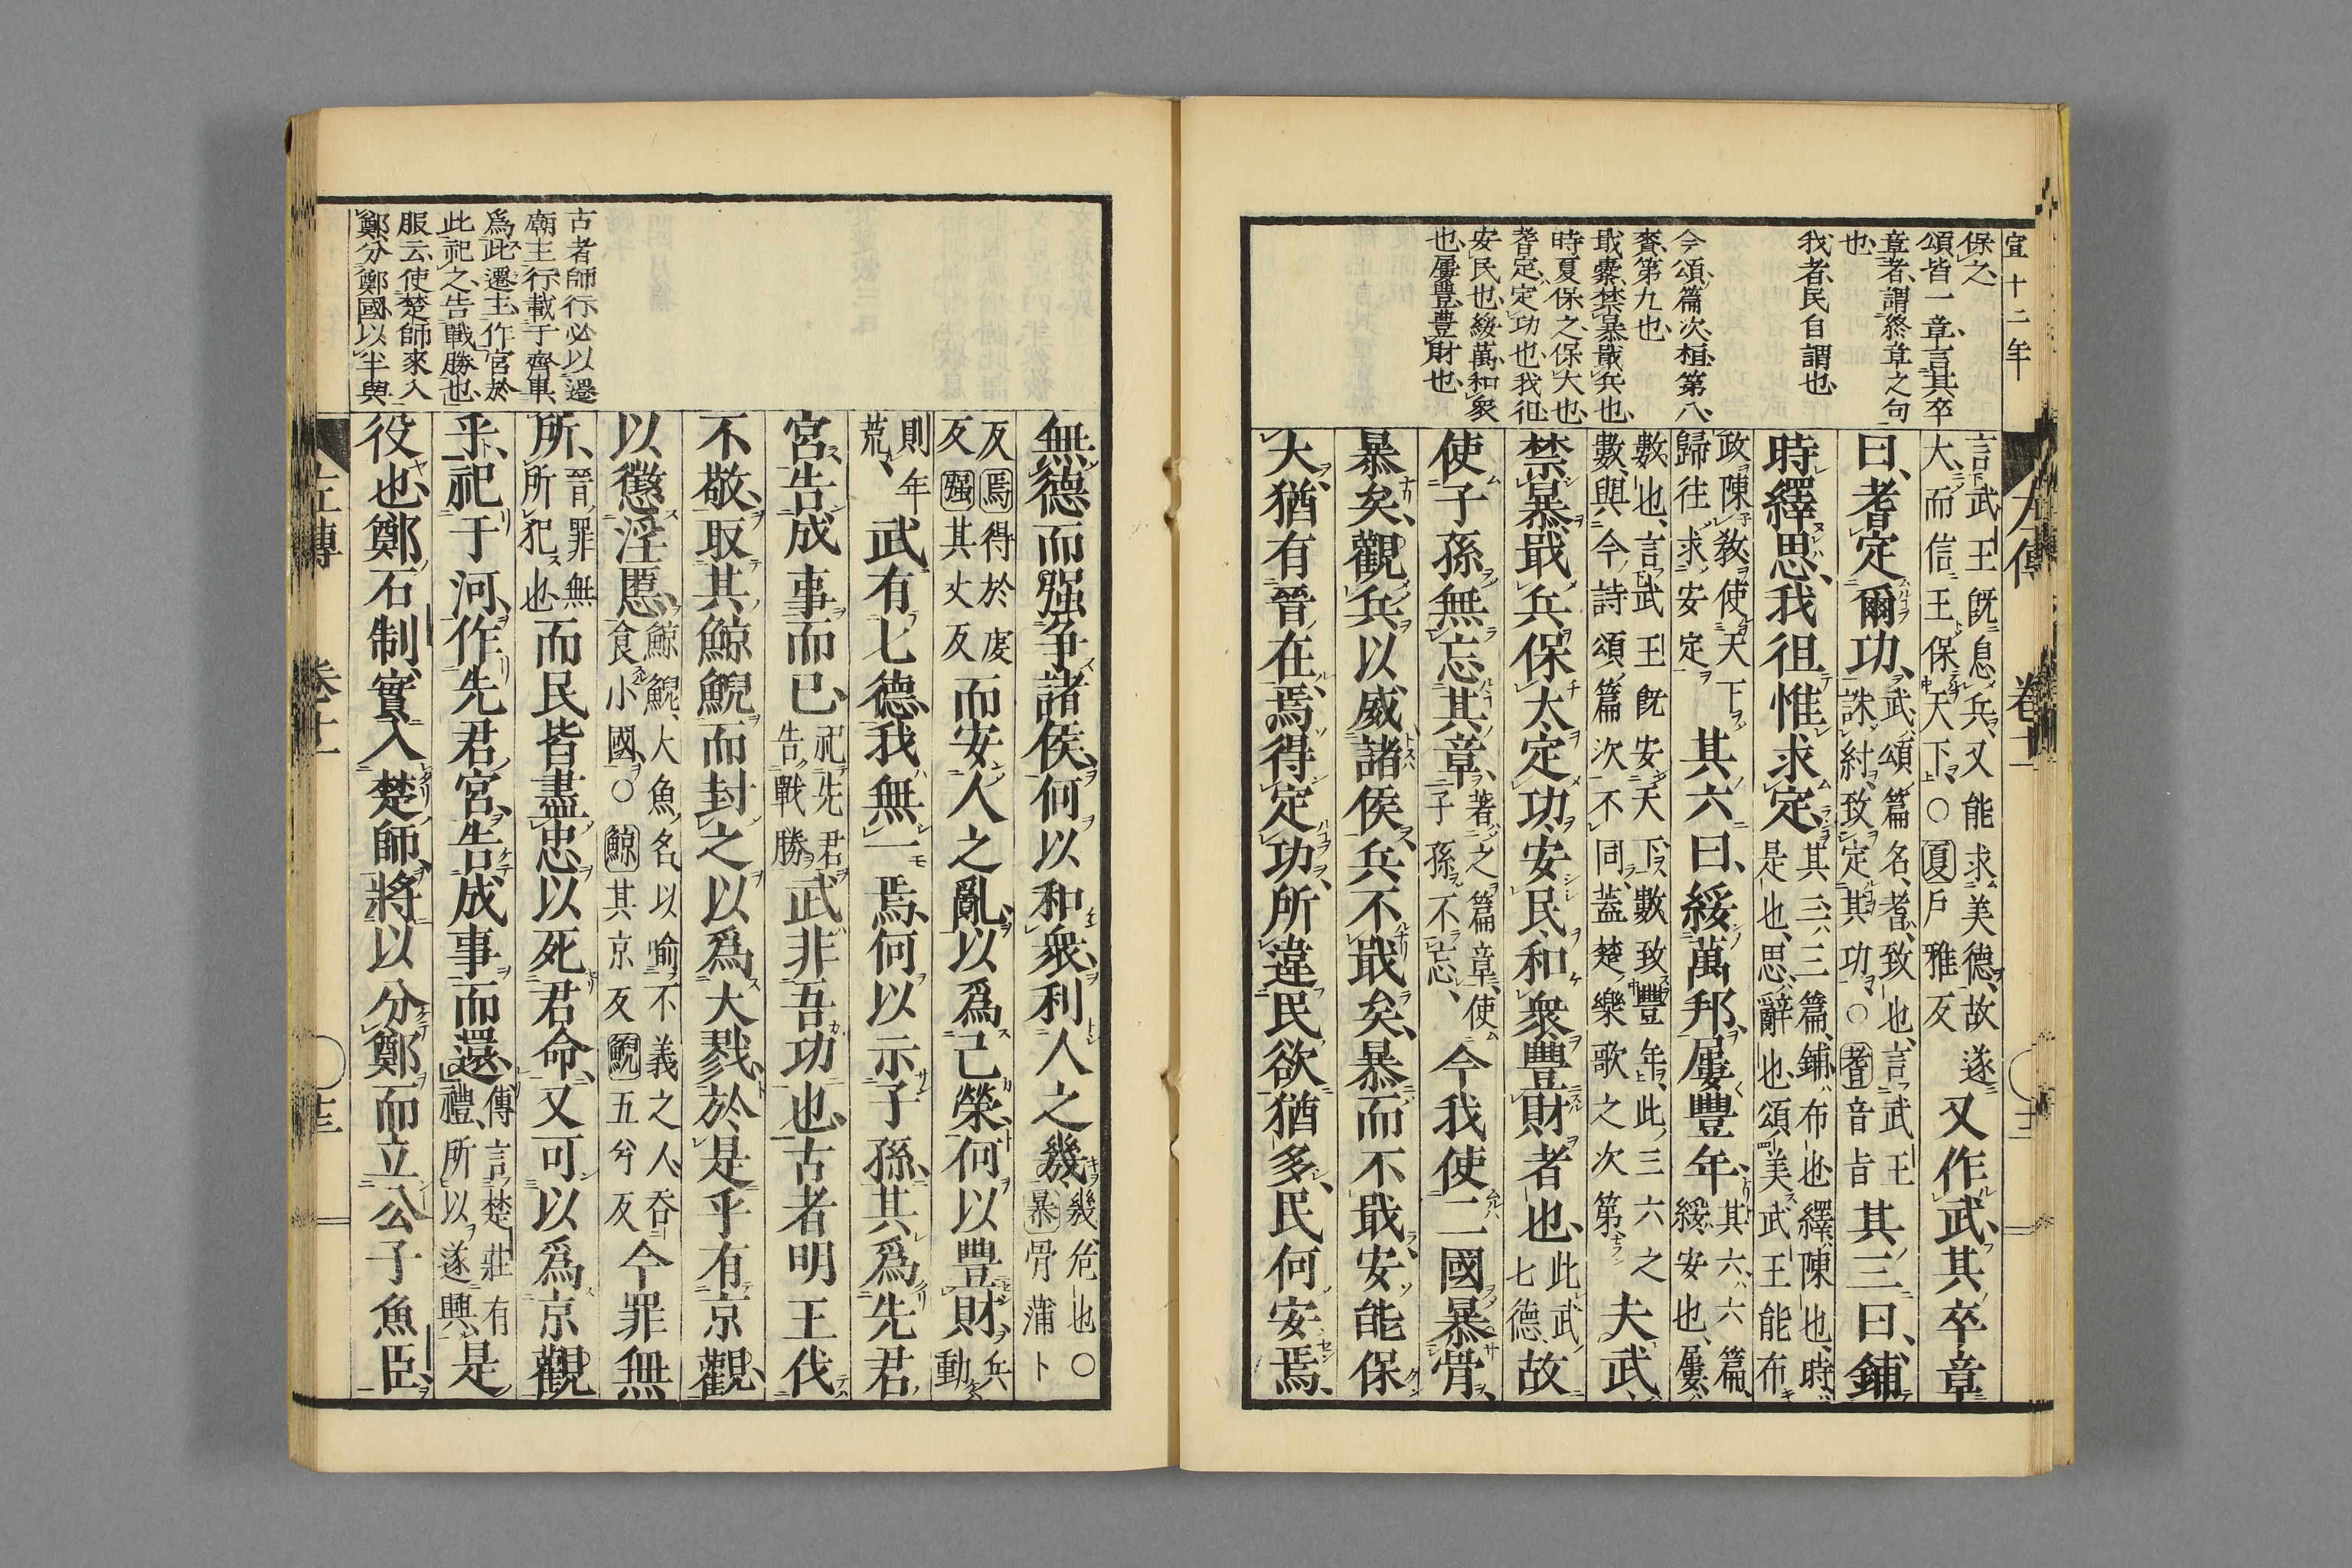 宣十二年
保之、
頌、皆一章、言其卒
章者、謂終章之句
也、
我者、民自謂也、
今頌、篇次桓第八、
賚第九也、
戢櫜、禁暴戢兵也、
時夏保之、保大也、
耆定、定功也、我徂
安民也、綏萬、和衆
也、屢豐、豐財也、
左傳 卷十一
言武王既息兵、又能求美德、故遂大、而信王保天下、○夏戶雅反又作武、其卒章
曰、耆定爾功、武、頌篇名、耆、致也、言武王誅紂、致定其功、○耆音旨其三曰、鋪
時繹思、我徂惟求定、其三、三篇、鋪、布也、繹、陳也、時、是也、思、辭也、頌美武王能布
政陳敎、使天下歸往求安定其六曰、綏萬邦、屢豐年、其六、六篇、綏、安也、屢、
數也、言武王既安天下、數致豐年、此三六之數、與今詩頌篇次不同、蓋楚樂歌之次第夫武、
禁暴戢兵、保大、定功、安民、和衆、豐財者也、此武七德、故
使子孫無忘其章、著之篇章、使子孫不忘、今我使二國暴骨、
暴矣、觀兵以威諸侯、兵不戢矣、暴而不戢、安能保
大、猶有晉在、焉得定功、所違民欲猶多、民何安焉、
無德而强爭諸侯、何以和衆、利人之幾、幾、危也○暴骨蒲卜
反焉得於虔反强其丈反而安人之亂、以爲己榮、何以豐財、兵動
則年荒、武有七德、我無一焉、何以示子孫、其爲先君
宮、告成事而已、祀先君、告戰勝武非吾功也、古者明王伐
不敬、取其鯨鯢而封之、以爲大戮、於是乎有京觀、
以懲淫慝、鯨鯢、大魚名、以喻不義之人吞食小國、○鯨其京反鯢五兮反今罪無
所、晉罪無所犯也、而民皆盡忠以死君命、又可以爲京觀
乎、祀于河、作先君宮、告成事而還、傳言楚莊有禮、所以遂興是
役也、鄭石制實入楚師、將以分鄭而立公子魚臣、
古者師行、必以遷
廟主行、載于齊車、
爲此遷主、作宮於
此、祀之、告戰勝也、
服云、使楚師來入
鄭、分鄭國、以半與
左傳 卷十一